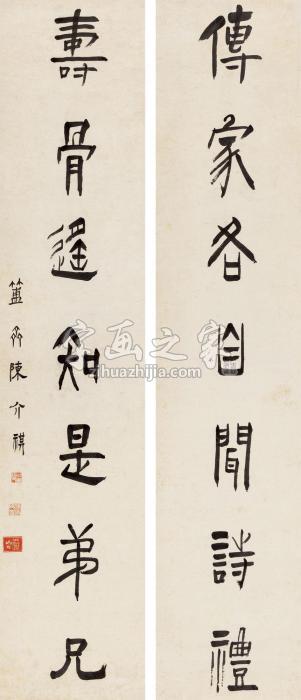 傳家各自聞詩禮
壽骨遙知是弟兄
簠齋陳介祺
字画之家
zihuazhijia.com